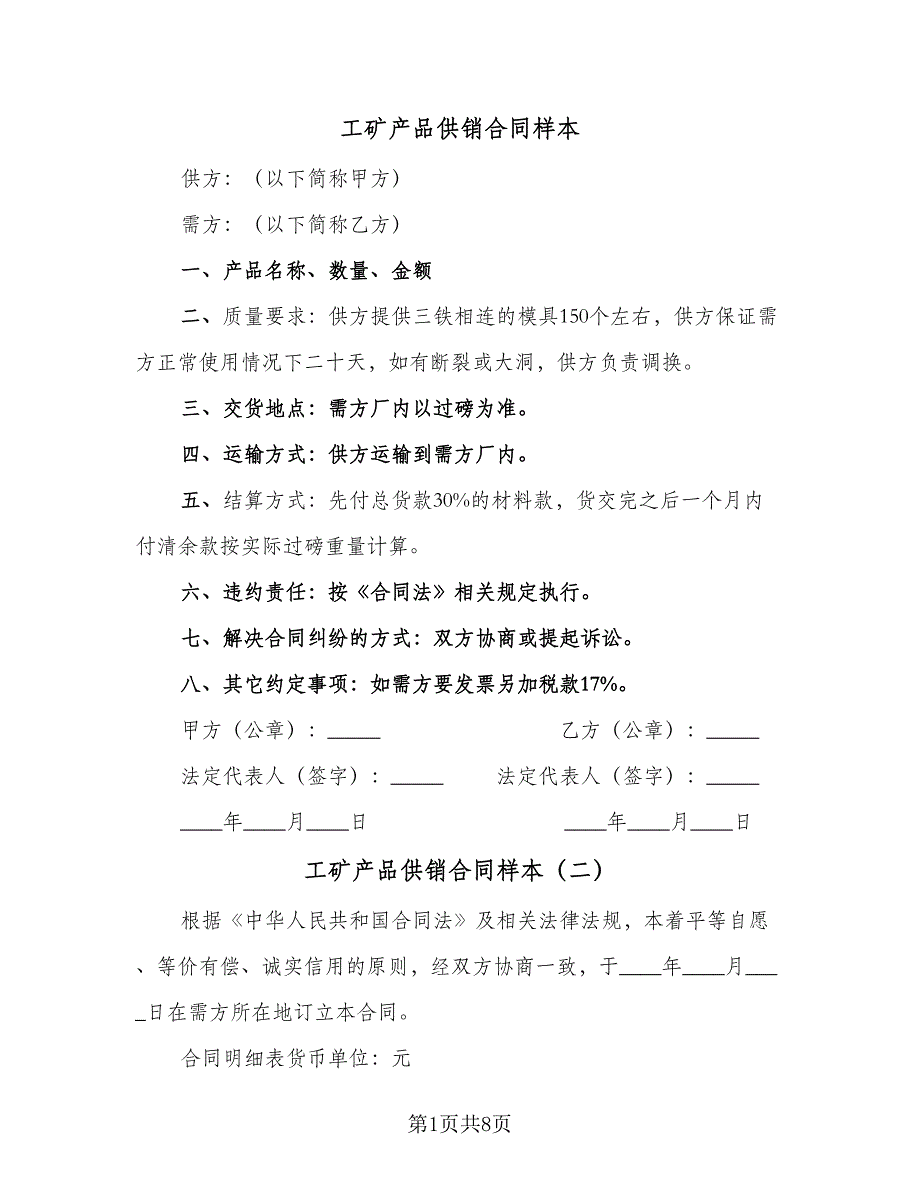 工矿产品供销合同样本
供方：（以下简称甲方）
需方：（以下简称乙方）
一、产品名称、数量、金额
二、质量要求：供方提供三铁相连的模具150个左右，供方保证需
方正常使用情况下二十天，如有断裂或大洞，供方负责调换。
三、交货地点：需方厂内以过磅为准。
四、运输方式：供方运输到需方厂内。
五、结算方式：先付总货款30%的材料款，货交完之后一个月内
付清余款按实际过磅重量计算。
六、违约责任：按《合同法》相关规定执行。
七、解决合同纠纷的方式：双方协商或提起诉讼。
八、其它约定事项：如需方要发票另加税款17%。
甲方（公章）：_____ 乙方（公章）：_____
法定代表人（签字）：_____ 法定代表人（签字）：_____
____年____月____日 ____年____月____日
工矿产品供销合同样本（二）
根据《中华人民共和国合同法》及相关法律法规，本着平等自愿
、等价有偿、诚实信用的原则，经双方协商一致，于____年____月___
_日在需方所在地订立本合同。
合同明细表货币单位：元
第1页共8页